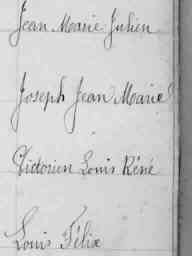 Jean Marie Julien
Joseph Jean Marie
Victorien Louis Réné
Louis Félix